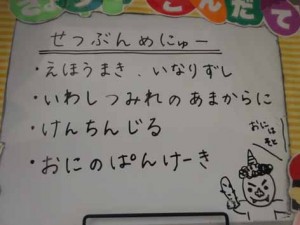 きょうのこんだて
せつぶんめにゅー
・えほうまき、いなりずし
・いわしつみれのあまからに
・けんちんじる
・おにのぱんけーき
おには
そと